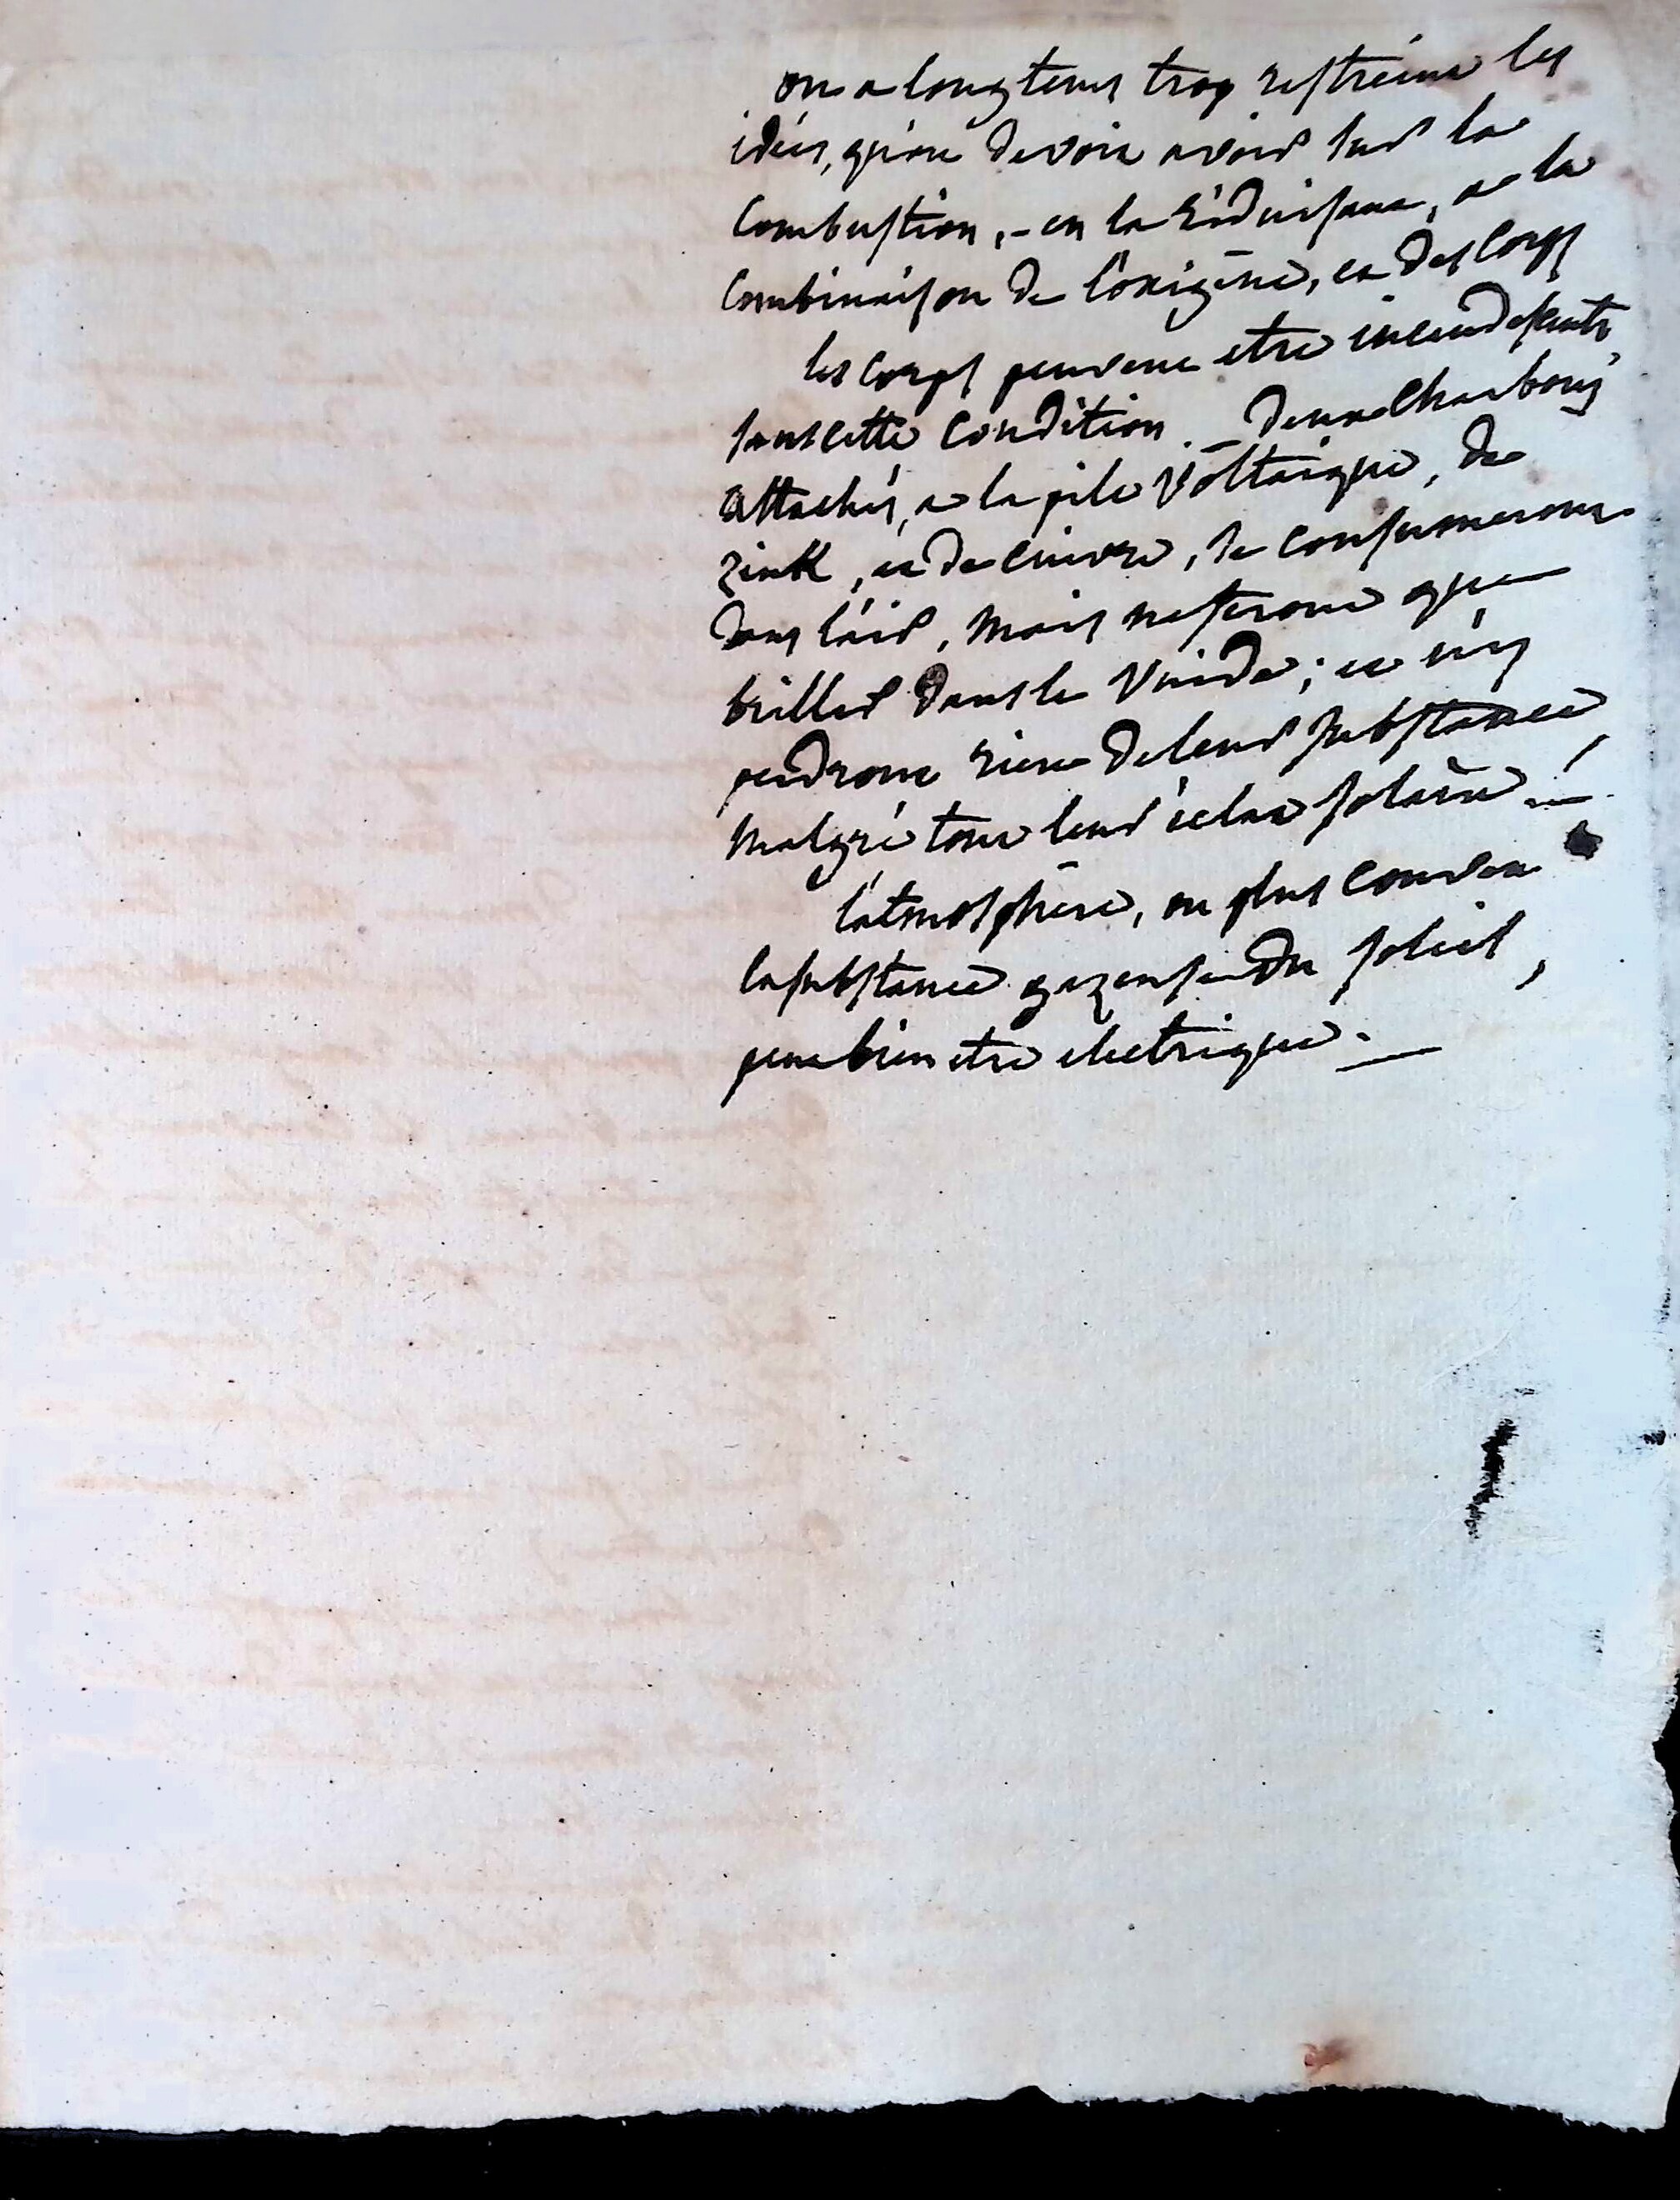 on a longtems trop restreint les
idées, qu'on devoit avoir sur la
Combustion, - en la réduisant, a la
Combinaison de l'oxigène, et des corps
les corps peuvent etre incandescents
sans cette condition. - deux charbons
attachés, a la pile voltaique, de
zink, et de cuivre, se consumeront
dans l'air, mais ne feront que
briller dans le vuide ; et n'y
perdront rien de leur substance,
malgré tout leur éclat solaire !
l'atmosphère, ou plus
la substance gazeuse du soleil,
peut bien etre electrique. —